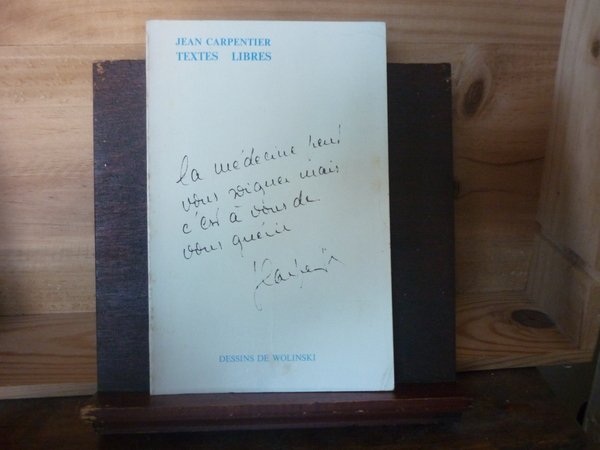 JEAN CARPENTIER
TEXTES LIBRES
la médecine peut
vous soigner mais
c'est à vous de
vous guérir
DESSINS DE WOLINSKI